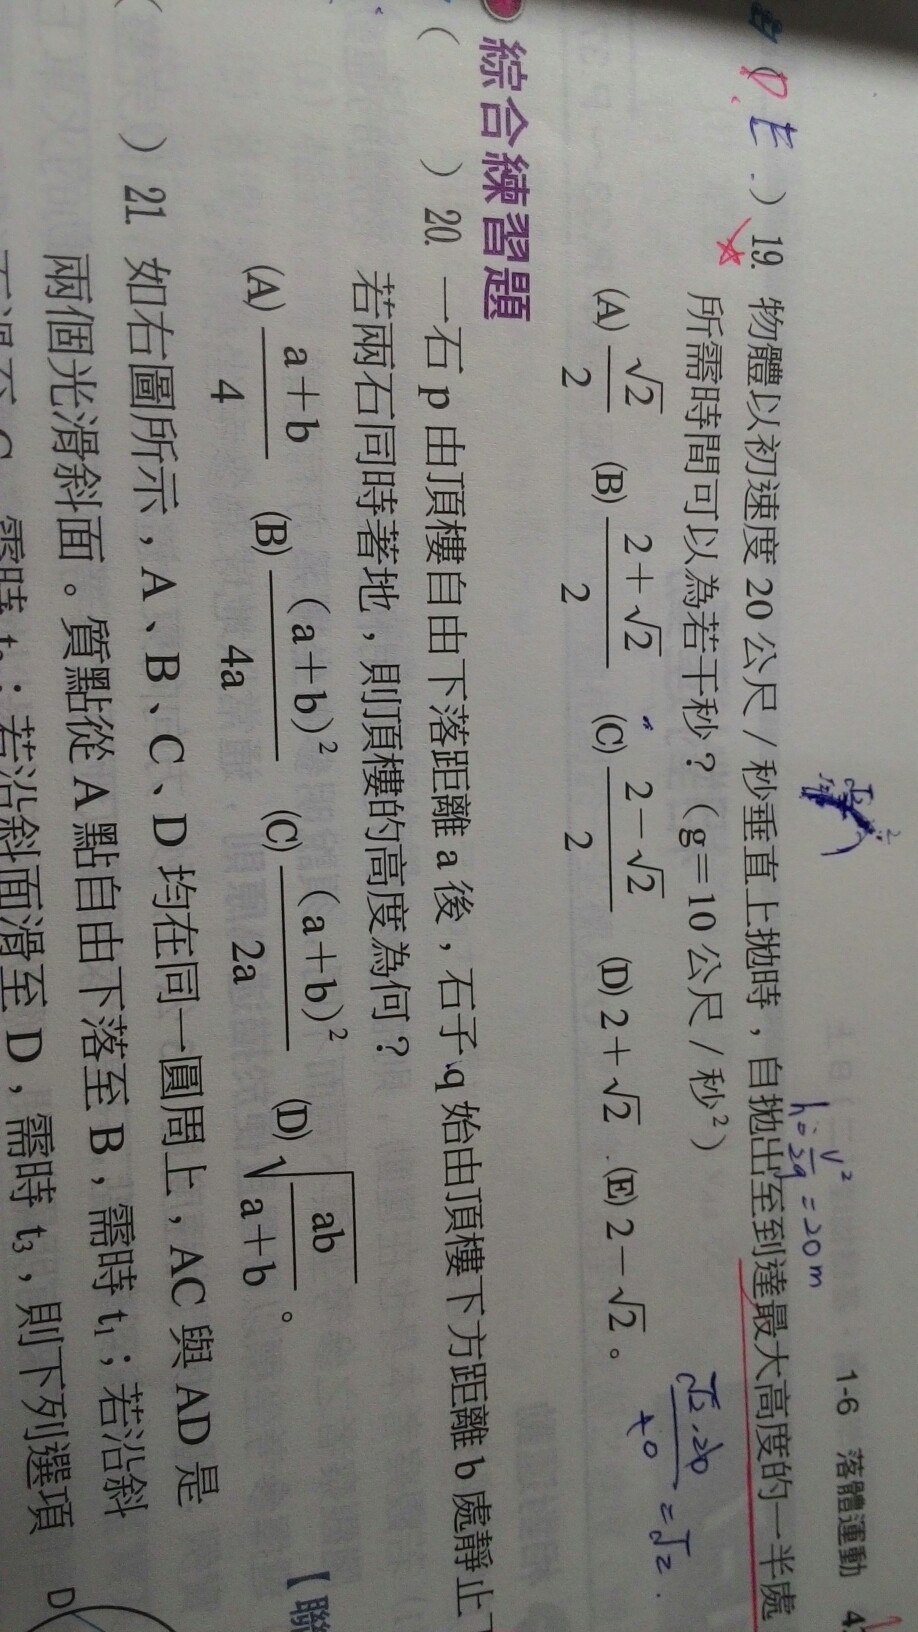 1-6 落體運動 4
h = v²/2g = 20m
(D.E.) 19. 物體以初速度 20 公尺/秒垂直上拋時，自拋出至到達最大高度的一半處
所需時間可以為若干秒？（g＝10 公尺/秒²）
(A) √2/2 (B) (2＋√2)/2 (C) (2－√2)/2 (D) 2＋√2 (E) 2－√2。
= √2.
綜合練習題
(　) 20. 一石 p 由頂樓自由下落距離 a 後，石子 q 始由頂樓下方距離 b 處靜止
若兩石同時著地，則頂樓的高度為何？
(A) (a＋b)/4 (B) (a＋b)²/4a (C) (a＋b)²/2a (D) √(ab/(a＋b))。
【聯
) 21. 如右圖所示，A、B、C、D 均在同一圓周上，AC 與 AD 是
兩個光滑斜面。質點從 A 點自由下落至 B，需時 t₁；若沿斜
需時 t₂；若沿斜面滑至 D，需時 t₃，則下列選項
D